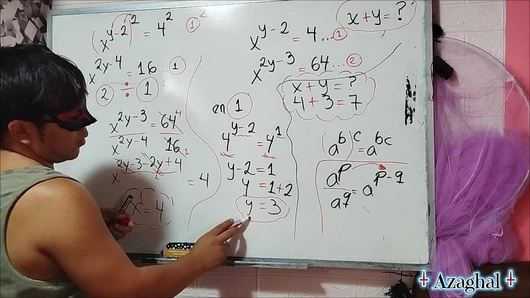 (x^{y-2})^2 = 4^2 ①
x^{2y-4} = 16 ①
② ÷ ①
x^{2y-3} = 64^4
x^{2y-4} 16
x^{2y-3-2y+4} = 4
x^1 = 4
an ①
4^{y-2} = 4^1
y-2=1
y = 1+2
y = 3
x+y=?
x^{y-2} = 4 ... ①
x^{2y-3} = 64 ... ②
x+y=?
4+3=7
(a^b)^c = a^{bc}
a^p
a^q = a^{p-q}
Azaghal